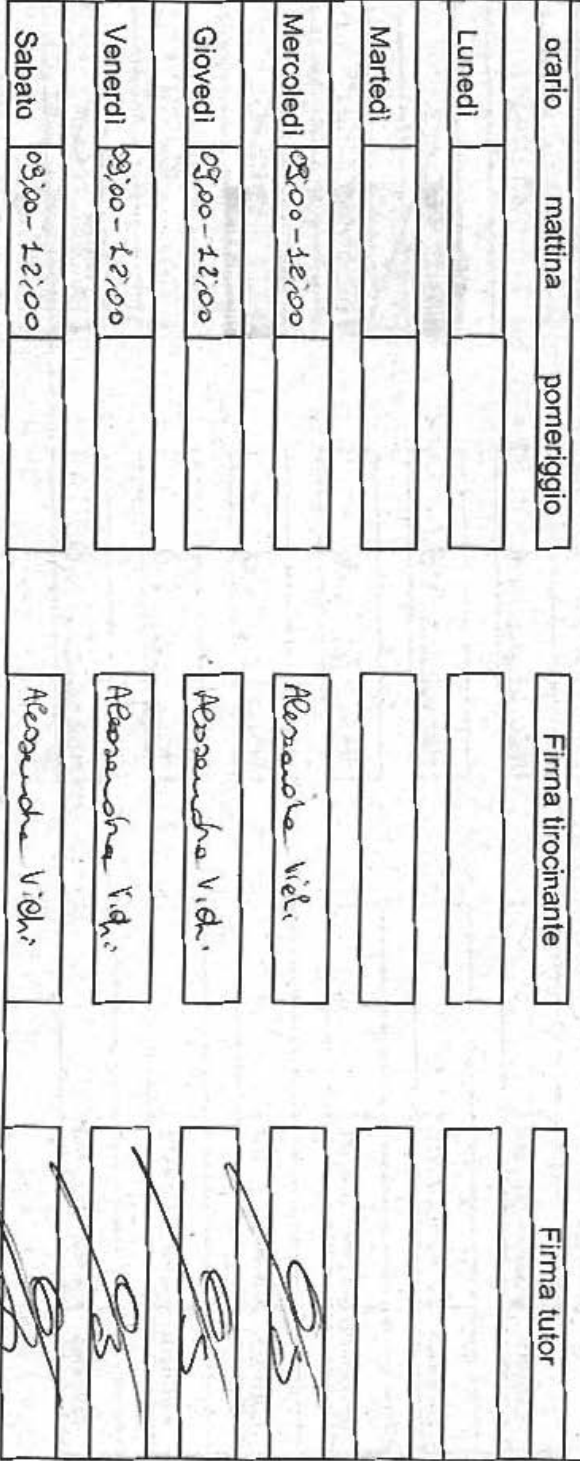 orario mattina pomeriggio Firma tirocinante Firma tutor
Lunedì
Martedì
Mercoledì 09,00-12,00 Alessandra Vichi
Giovedì 09,00-12,00 Alessandra Vichi
Venerdì 09,00-12,00 Alessandra Vichi
Sabato 09,00-12,00 Alessandra Vichi